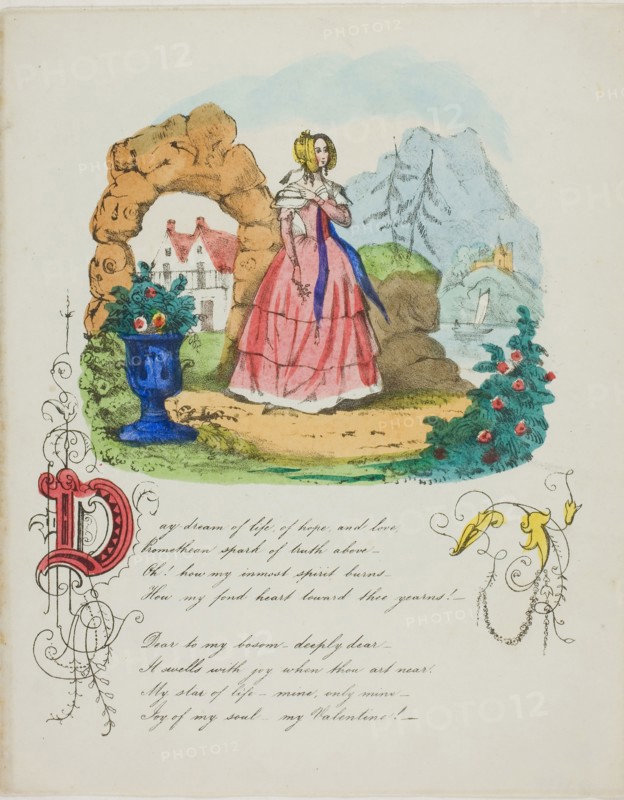 Day dream of life, of hope, and love,
Promethean spark of truth above —
Oh! how my inmost spirit burns —
How my fond heart toward thee yearns! —
Dear to my bosom — deeply dear —
It swells with joy when thou art near.
My star of life — mine, only mine —
Joy of my soul — my Valentine! —
PHOTO12